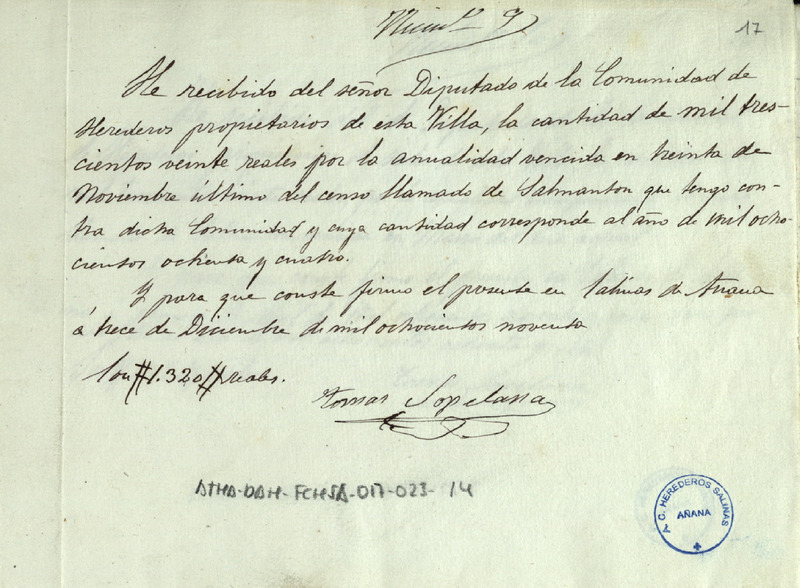 Num.º 9
17
He recibido del señor Diputado de la Comunidad de
Herederos propietarios de esta Villa, la cantidad de mil tres-
cientos veinte reales por la anualidad vencida en treinta de
Noviembre último del censo llamado de Salmanton que tengo con-
tra dicha Comunidad y cuya cantidad corresponde al año de mil ocho-
cientos ochenta y cuatro.
Y para que conste firmo el presente en Salinas de Añana
á trece de Diciembre de mil ochocientos noventa
Son #1.320# reales.
Tomas Sopelana
ATHA-DAH-FCHSA-017-023-14
A C. HEREDEROS SALINAS
AÑANA